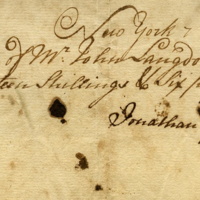 New York 7
of Mr. John Langdo
teen Shillings & Six p
Jonathan